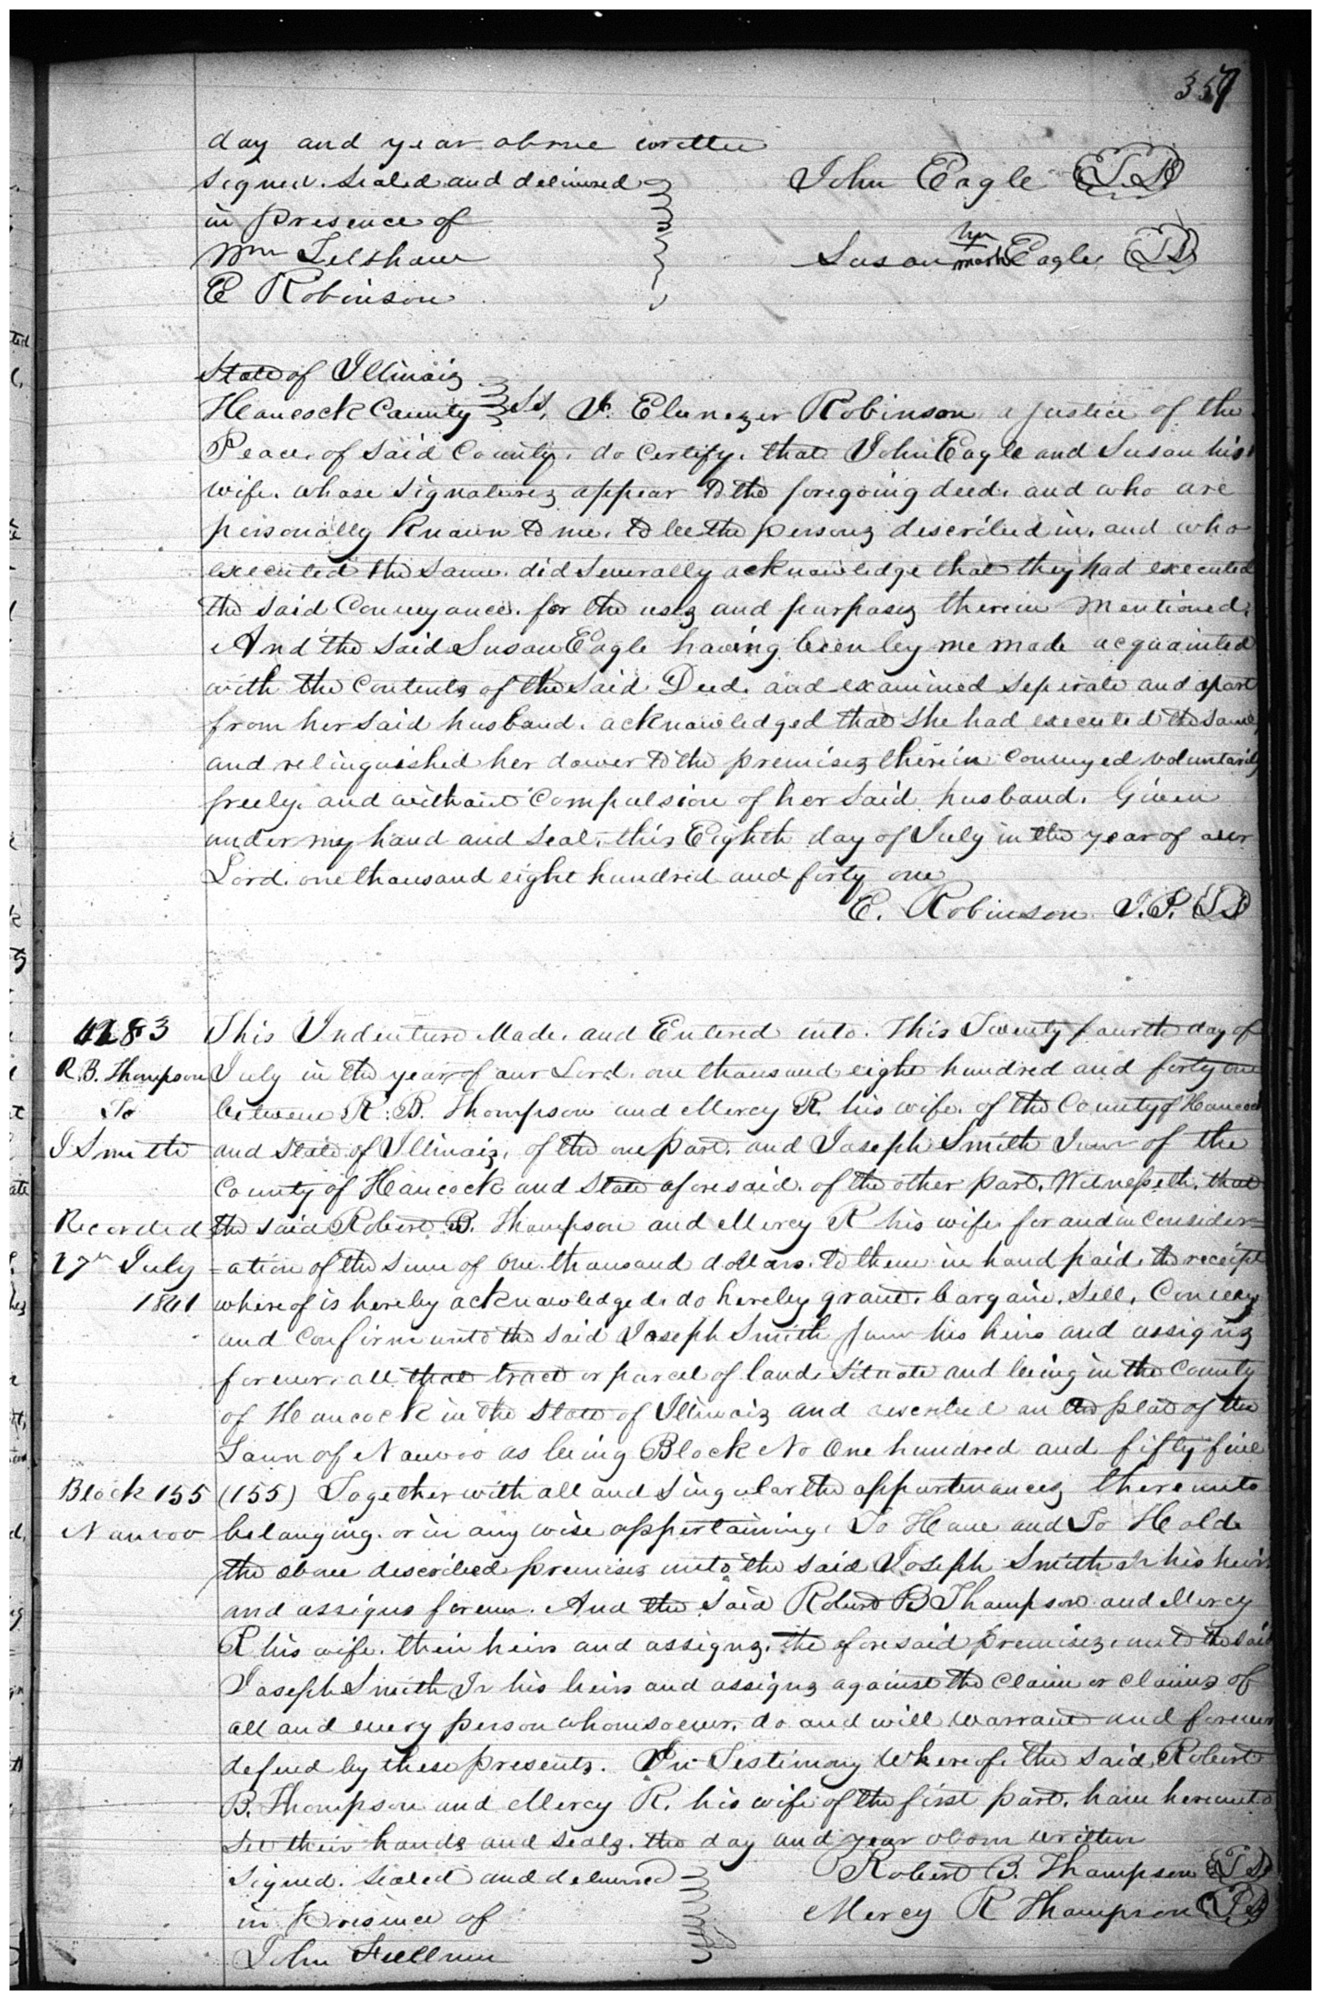 357
day and year above written
Signed. Sealed and delivered
John Eagle
in presence of
Wm
her
Susan mark Eagle
E Robinson
State of Illinois
Hancock County SS, I. Ebenezer Robinson a justice of the
Peace. of Said County. do Certify. that John Eagle and Susan his
wife. whose Signatures appear to the foregoing deed. and who are
personally known to me. to be the persons described in. and who
executed the same. did Severally acknowledge that they had executed
the said Conveyance. for the uses and purposes therein Mentioned.
And the said Susan Eagle having been by me made acquainted
with the Contents of the said Deed. and examined Seperate and apart
from her Said husband. acknowledged that She had executed the Same
and relinquished her dower to the premises therein Conveyed voluntarily
freely. and without Compulsion of her Said husband. Given
under my hand and Seal. this Eighth day of July in the year of our
Lord. one thousand eight hundred and forty one
E. Robinson J.P.
4283
This Indenture Made. and Entered into. This Twenty fourth day of
R. B. Thompson
July in the year of our Lord. one thousand eight hundred and forty one
To
between R. B. Thompson and Mercy R. his wife. of the County of Hancock
J Smith
and State of Illinois, of the one part. and Joseph Smith Junr of the
County of Hancock and State aforesaid. of the other part. Witnesseth. that
Recorded
the said Robert B. Thompson and Mercy R his wife for and in Consider=
27th July
=ation of the Sum of One thousand dollars. to them in hand paid. the receipt
1841
whereof is hereby acknowledged. do hereby grant. bargain. Sell. Convey
and Confirm unto the said Joseph Smith Junr his heirs and assigns
forever. all that tract or parcel of land. Situate and being in the County
of Hancock in the State of Illinois and described on the plat of the
Town of Nauvoo as being Block No One hundred and fifty five
Block 155
(155) Together with all and Singular the appurtenances thereunto
Nauvoo
belonging. or in any wise appertaining. To Have and To Hold
the above described premises unto the said Joseph Smith Jr his heirs
and assigns forever. And the said Robert B Thompson and Mercy
R his wife. their heirs and assigns. the aforesaid premises. unto the said
Joseph Smith Jr his heirs and assigns against the Claim or Claims of
all and every person whomsoever. do and will warrant and forever
defend by these presents. In Testimony Whereof. the said Robert
B. Thompson and Mercy R. his wife of the first part. have hereunto
Set their hands and Seals. the day and year above written
Signed. Sealed and delivered
Robert B. Thompson
in Presence of
Mercy R Thompson
John